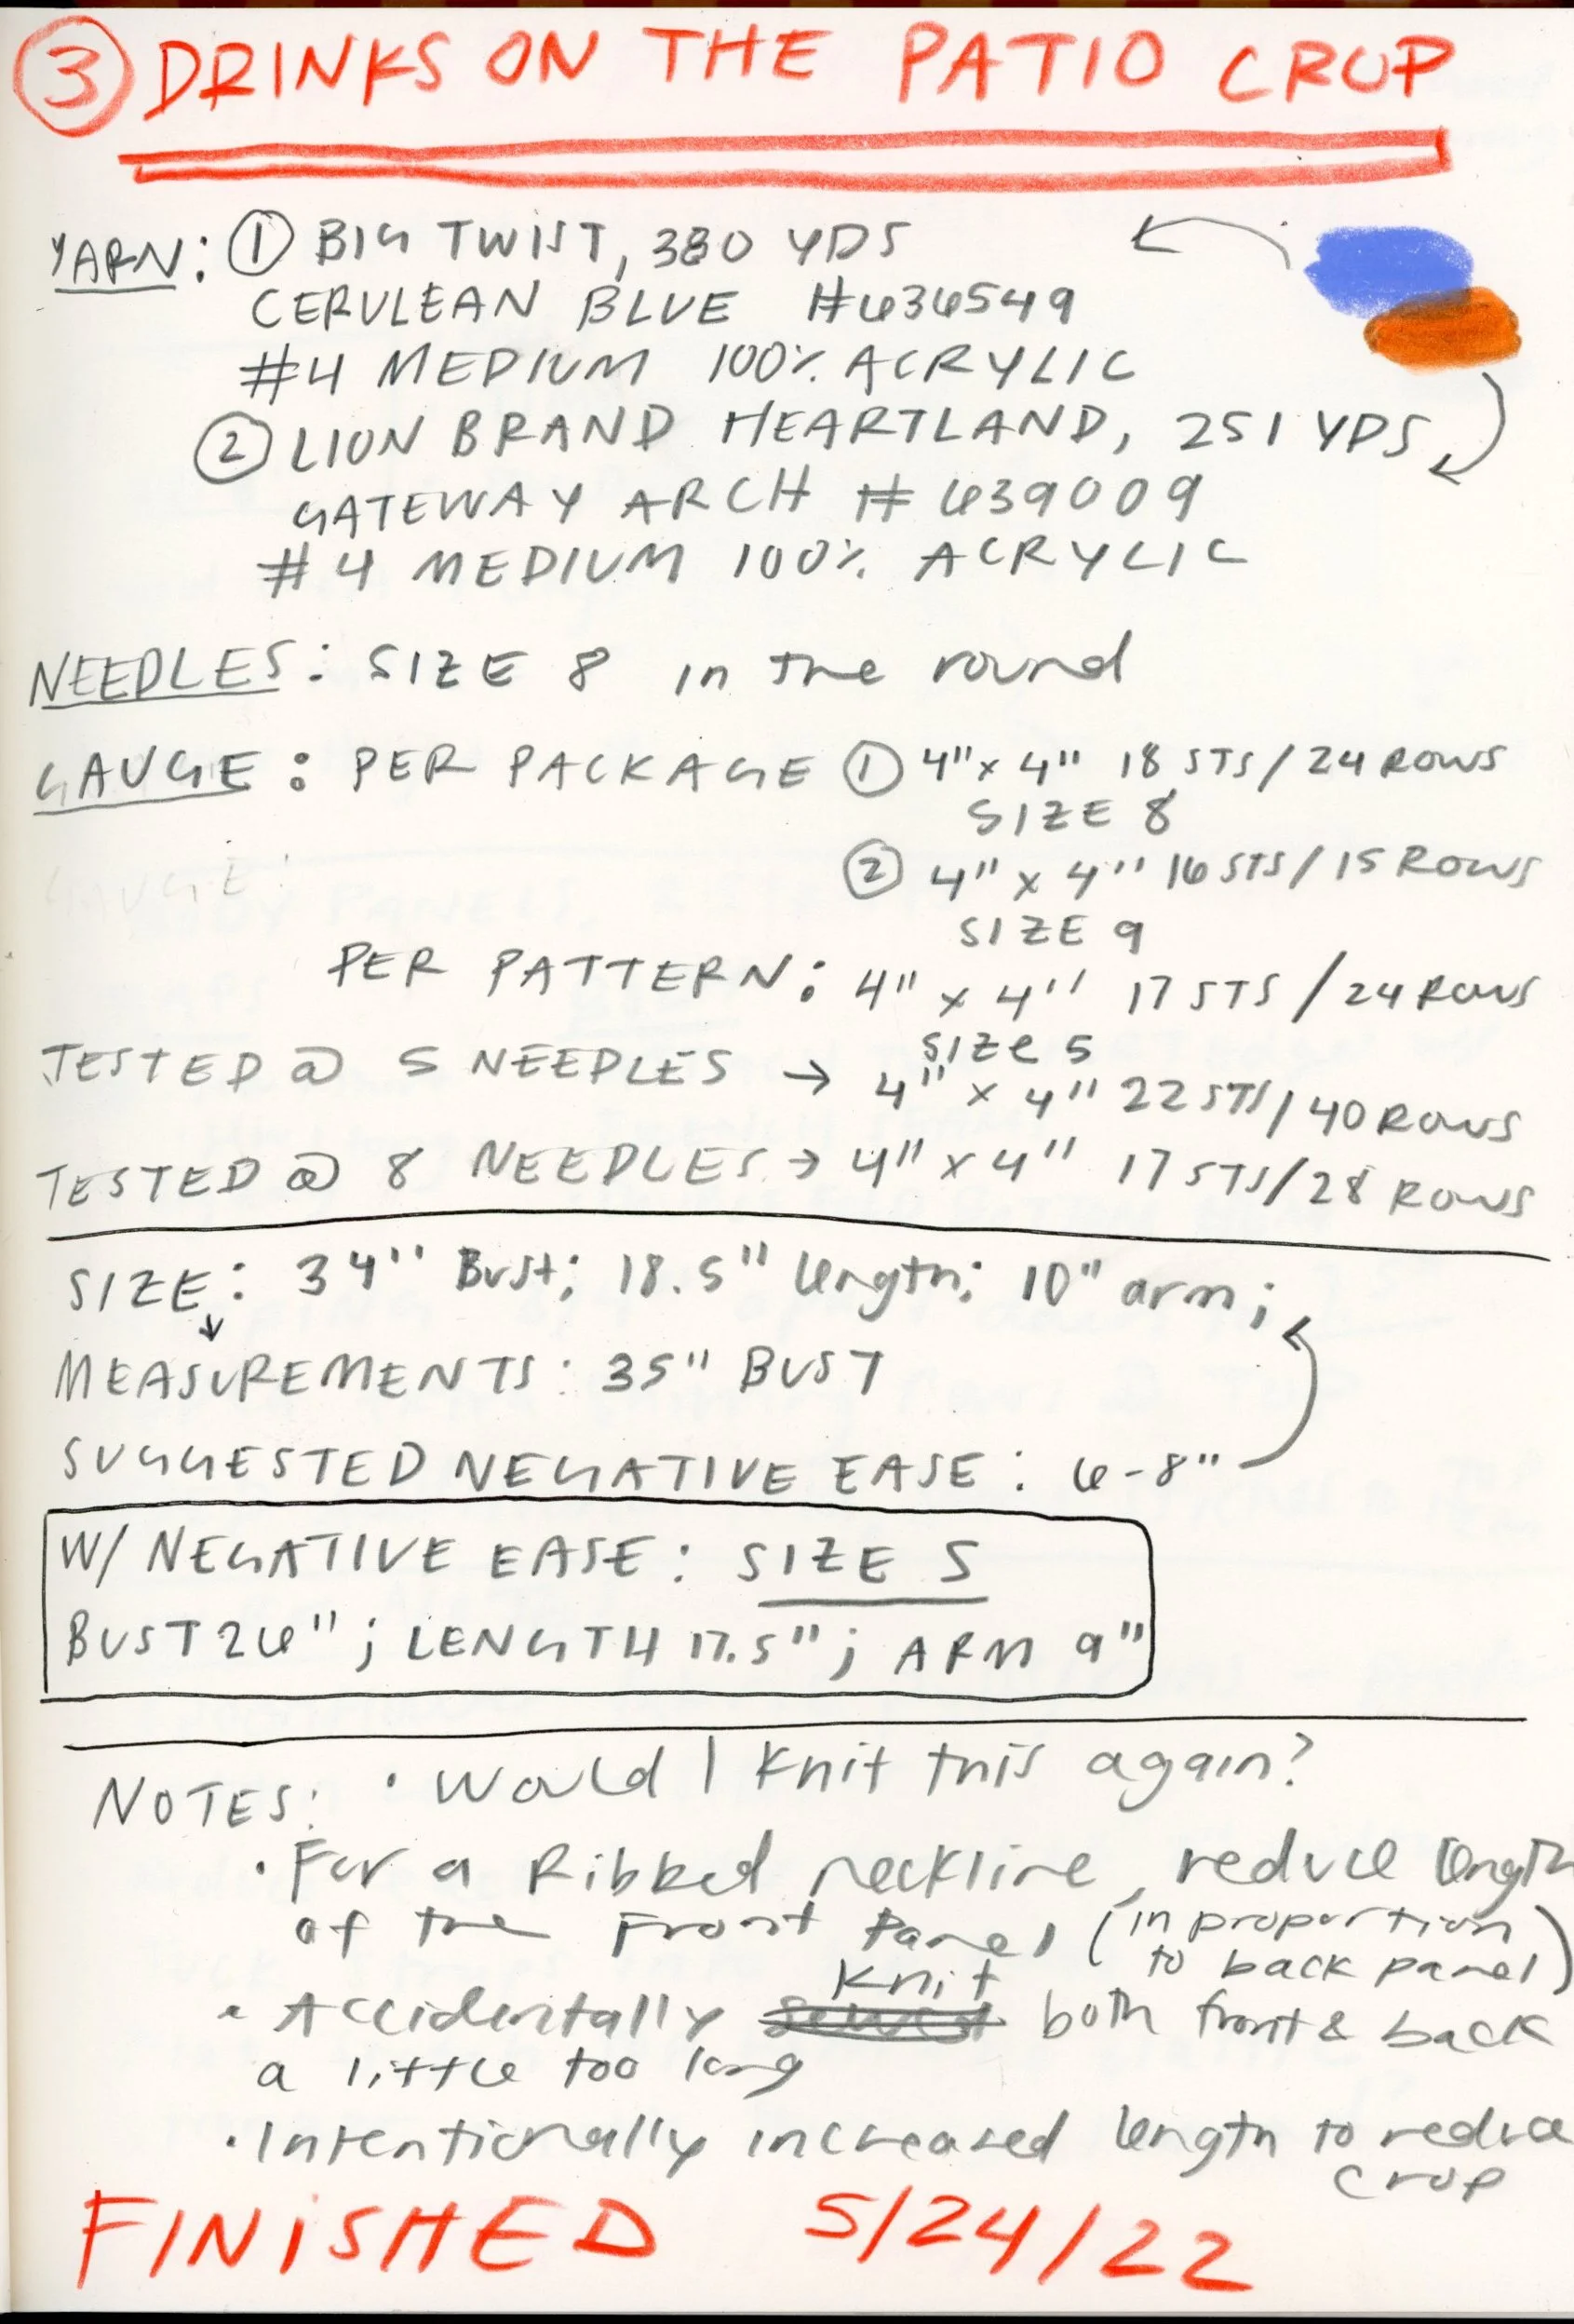 ③ DRINKS ON THE PATIO CROP
YARN: ① BIG TWIST, 380 YDS
CERULEAN BLUE #636549
#4 MEDIUM 100% ACRYLIC
② LION BRAND HEARTLAND, 251 YDS
GATEWAY ARCH #639009
#4 MEDIUM 100% ACRYLIC
NEEDLES: SIZE 8 in the round
GAUGE: PER PACKAGE ① 4" x 4" 18 STS/24 ROWS
SIZE 8
GAUGE:
② 4" x 4" 16 STS/15 ROWS
SIZE 9
PER PATTERN: 4" x 4" 17 STS/24 ROWS
SIZE 5
TESTED @ 5 NEEDLES → 4" x 4" 22 STS/40 ROWS
TESTED @ 8 NEEDLES → 4" x 4" 17 STS/28 ROWS
SIZE: 34" Bust; 18.5" length; 10" arm;
MEASUREMENTS: 35" BUST
SUGGESTED NEGATIVE EASE: 6-8"
W/ NEGATIVE EASE: SIZE S
BUST 26"; LENGTH 17.5"; ARM 9"
NOTES: • Would I knit this again?
• For a Ribbed neckline, reduce length
of the Front Panel (in proportion
to back panel)
• Accidentally knit both front & back
a little too long
• Intentionally increased length to reduce
crop
FINISHED 5/24/22